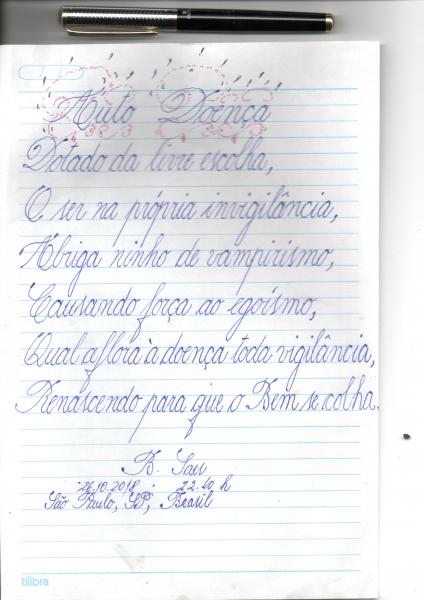 Auto Doença
Dotado da livre escolha,
O ser na própria invigilância,
Abriga ninho de vampirismo,
Causando força ao egoísmo,
Qual aflora à doença toda vigilância,
Renascendo para que o Bem se colha.
B.
26.10.2018 . 22.40 h
São Paulo, SP, Brasil
tilibra